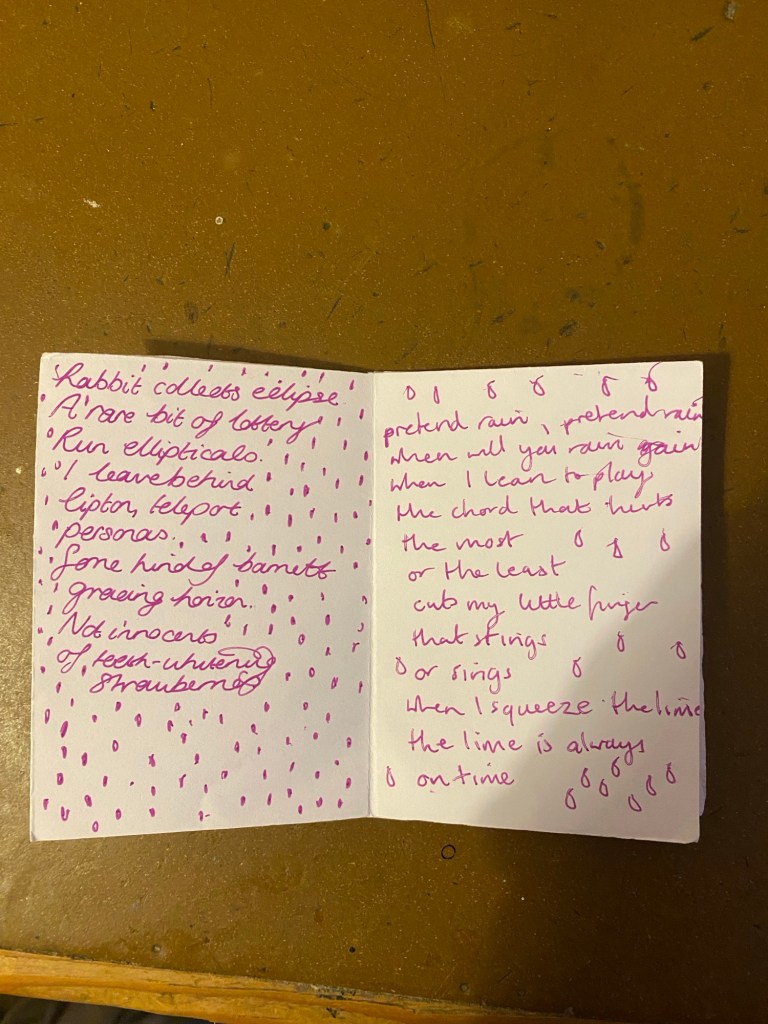 Rabbit collects eclipse
A rare bit of lottery
Run ellipticals.
I leave behind
lipton, teleport
personas.
Some kind of barnetts
grazing horizon.
Not innocents
of teeth-whitening
strawberries
pretend rain, pretend rain
when will you rain again
when I lean to play
the chord that hurts
the most
or the least
cuts my little finger
that stings
or sings
when I squeeze the lime
the lime is always
on time